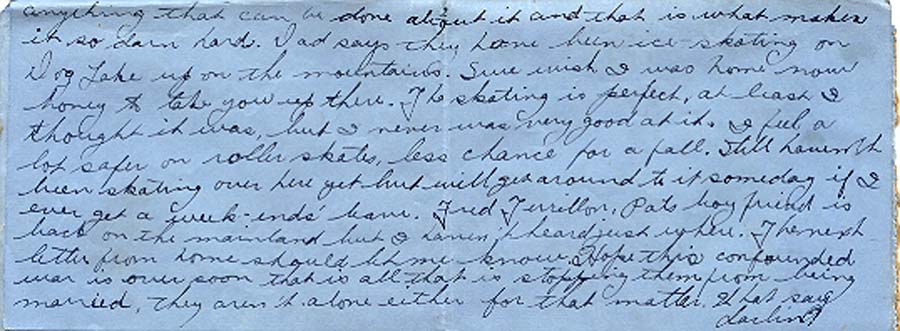 anything that can be done about it and that is what makes
it so darn hard. Dad says they have been ice-skating on
Dog Lake up on the mountains. Sure wish I was home now
honey to take you up there. The skating is perfect, at least I
thought it was, but I never was very good at it. I feel a
lot safer on roller skates, less chance for a fall. Still haven't
been skating over here yet but will get around to it someday if I
ever get a week-ends' leave. Fred, Pats boy friend is
back on the mainland but I haven't heard just where. The next
letter from home should let me know. Hope this confounded
war is over soon that is all that is stopping them from being
married, they aren't alone either for that matter. What say
darlin?